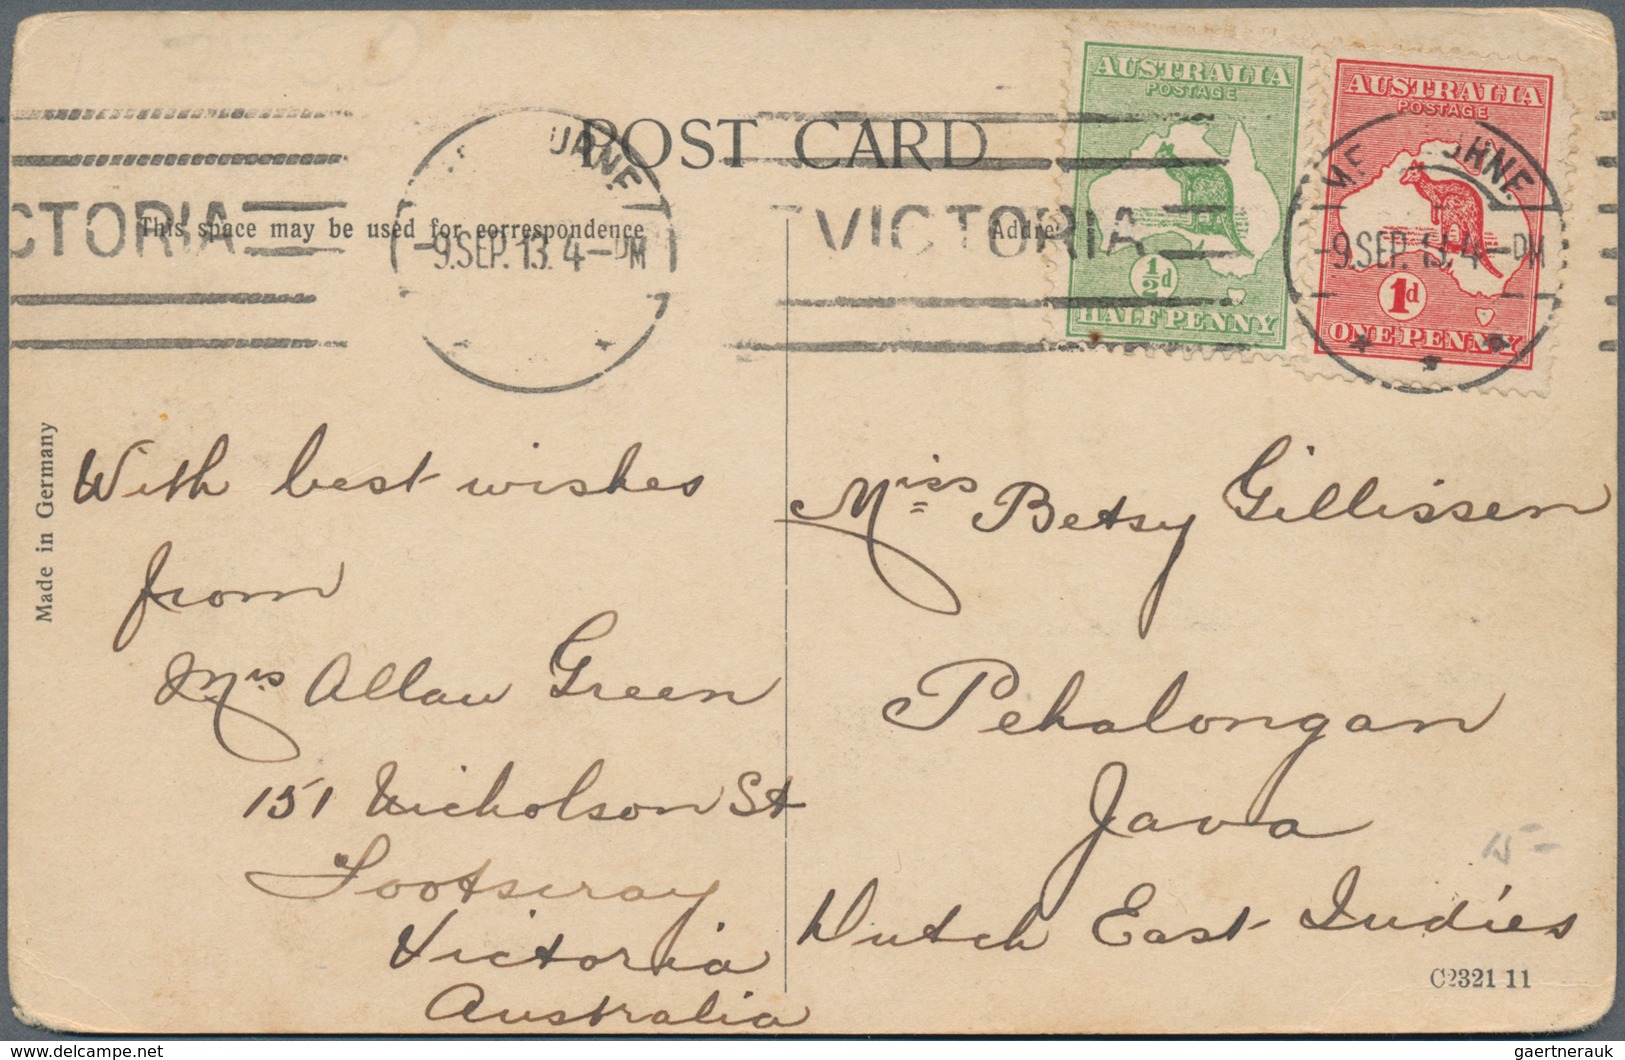 POST CARD
AUSTRALIA
POSTAGE
½d
HALFPENNY
AUSTRALIA
POSTAGE
1d
ONE PENNY
CTORIA
URNE
-9.SEP.13.4-PM
VICTORIA
ME URNE
-9.SEP.13.4-PM
This space may be used for correspondence
Addre
Made in Germany
With best wishes
from
Mrs Allan Green
151 Nicholson St
Footscray
Victoria
Australia
Miss Betsy Gillissen
Pekalongan
Java
Dutch East Indies
15-
C2321 11
gaertnerauk
© www.delcampe.net